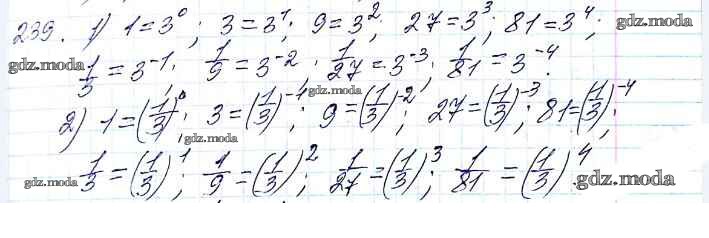 239. 1) 1=3⁰; 3=3¹; 9=3²; 27=3³; 81=3⁴; gdz.moda
gdz.moda 1/3=3⁻¹; 1/9=3⁻²; 1/27=3⁻³; 1/81=3⁻⁴. gdz.moda
2) 1=(1/3)⁰; 3=(1/3)⁻¹; 9=(1/3)⁻²; 27=(1/3)⁻³; 81=(1/3)⁻⁴;
gdz.moda
gdz.moda 1/3=(1/3)¹; 1/9=(1/3)²; 1/27=(1/3)³; 1/81=(1/3)⁴. gdz.moda